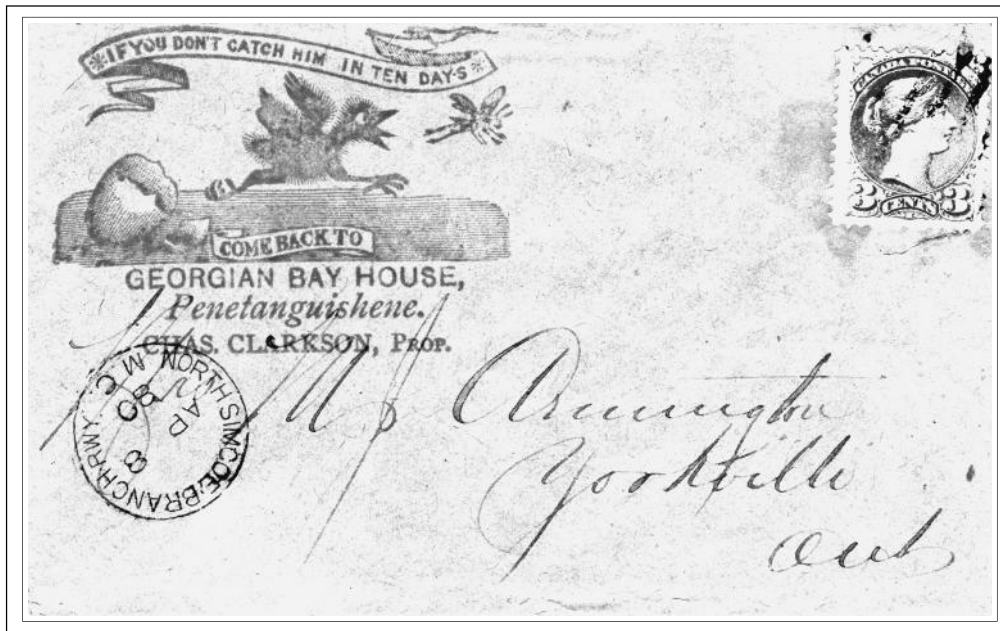 *IF YOU DON'T CATCH HIM IN TEN DAYS*
CANADA POSTAGE
3 CENTS 3
COME BACK TO
GEORGIAN BAY HOUSE,
Penetanguishene.
CHAS. CLARKSON, PROP.
NORTH SIMCOE.BRANCH.RWY. M.C
AP
8
80
Armington
Yorkville
Ont